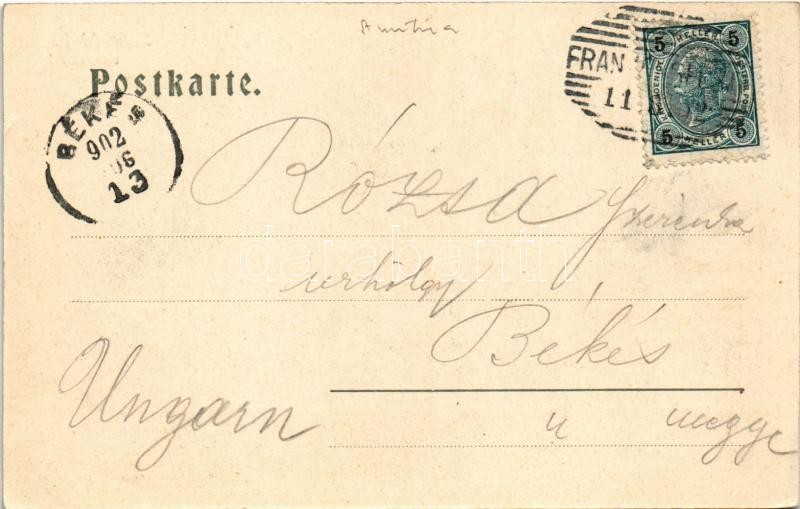 Austria
Postkarte.
FRAN
11
5 HELLER 5
5 HELLER 5
BÉKÉS
902
13
Rózsa Szerenka
urhölgy
Békés
Ungarn
u megye
darabanth